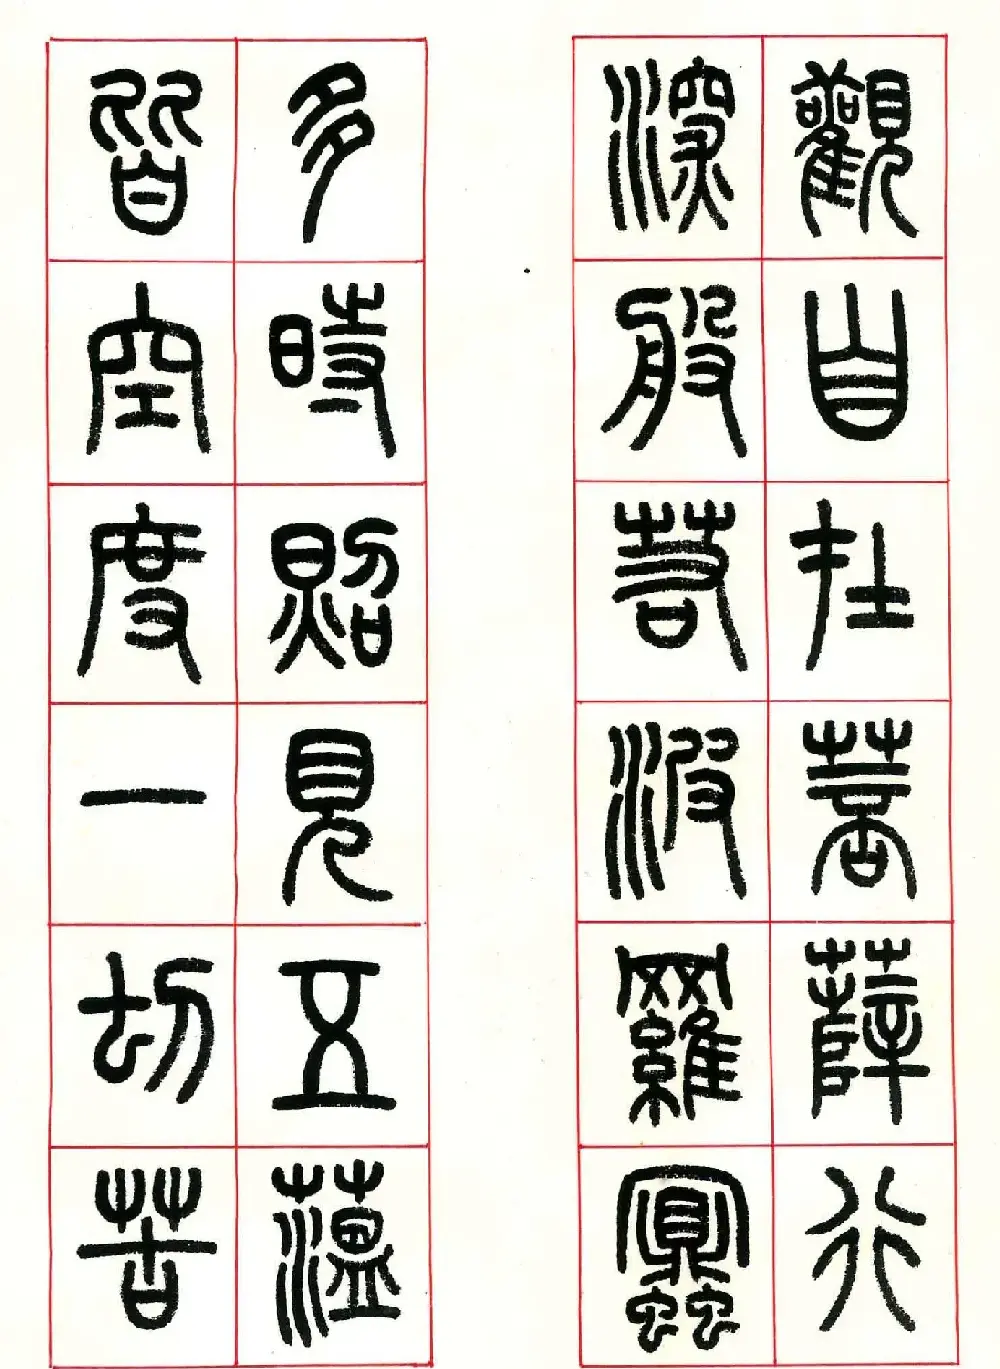 觀自在菩薩行
深般若波羅蜜
多時照見五薀
皆空度一切苦